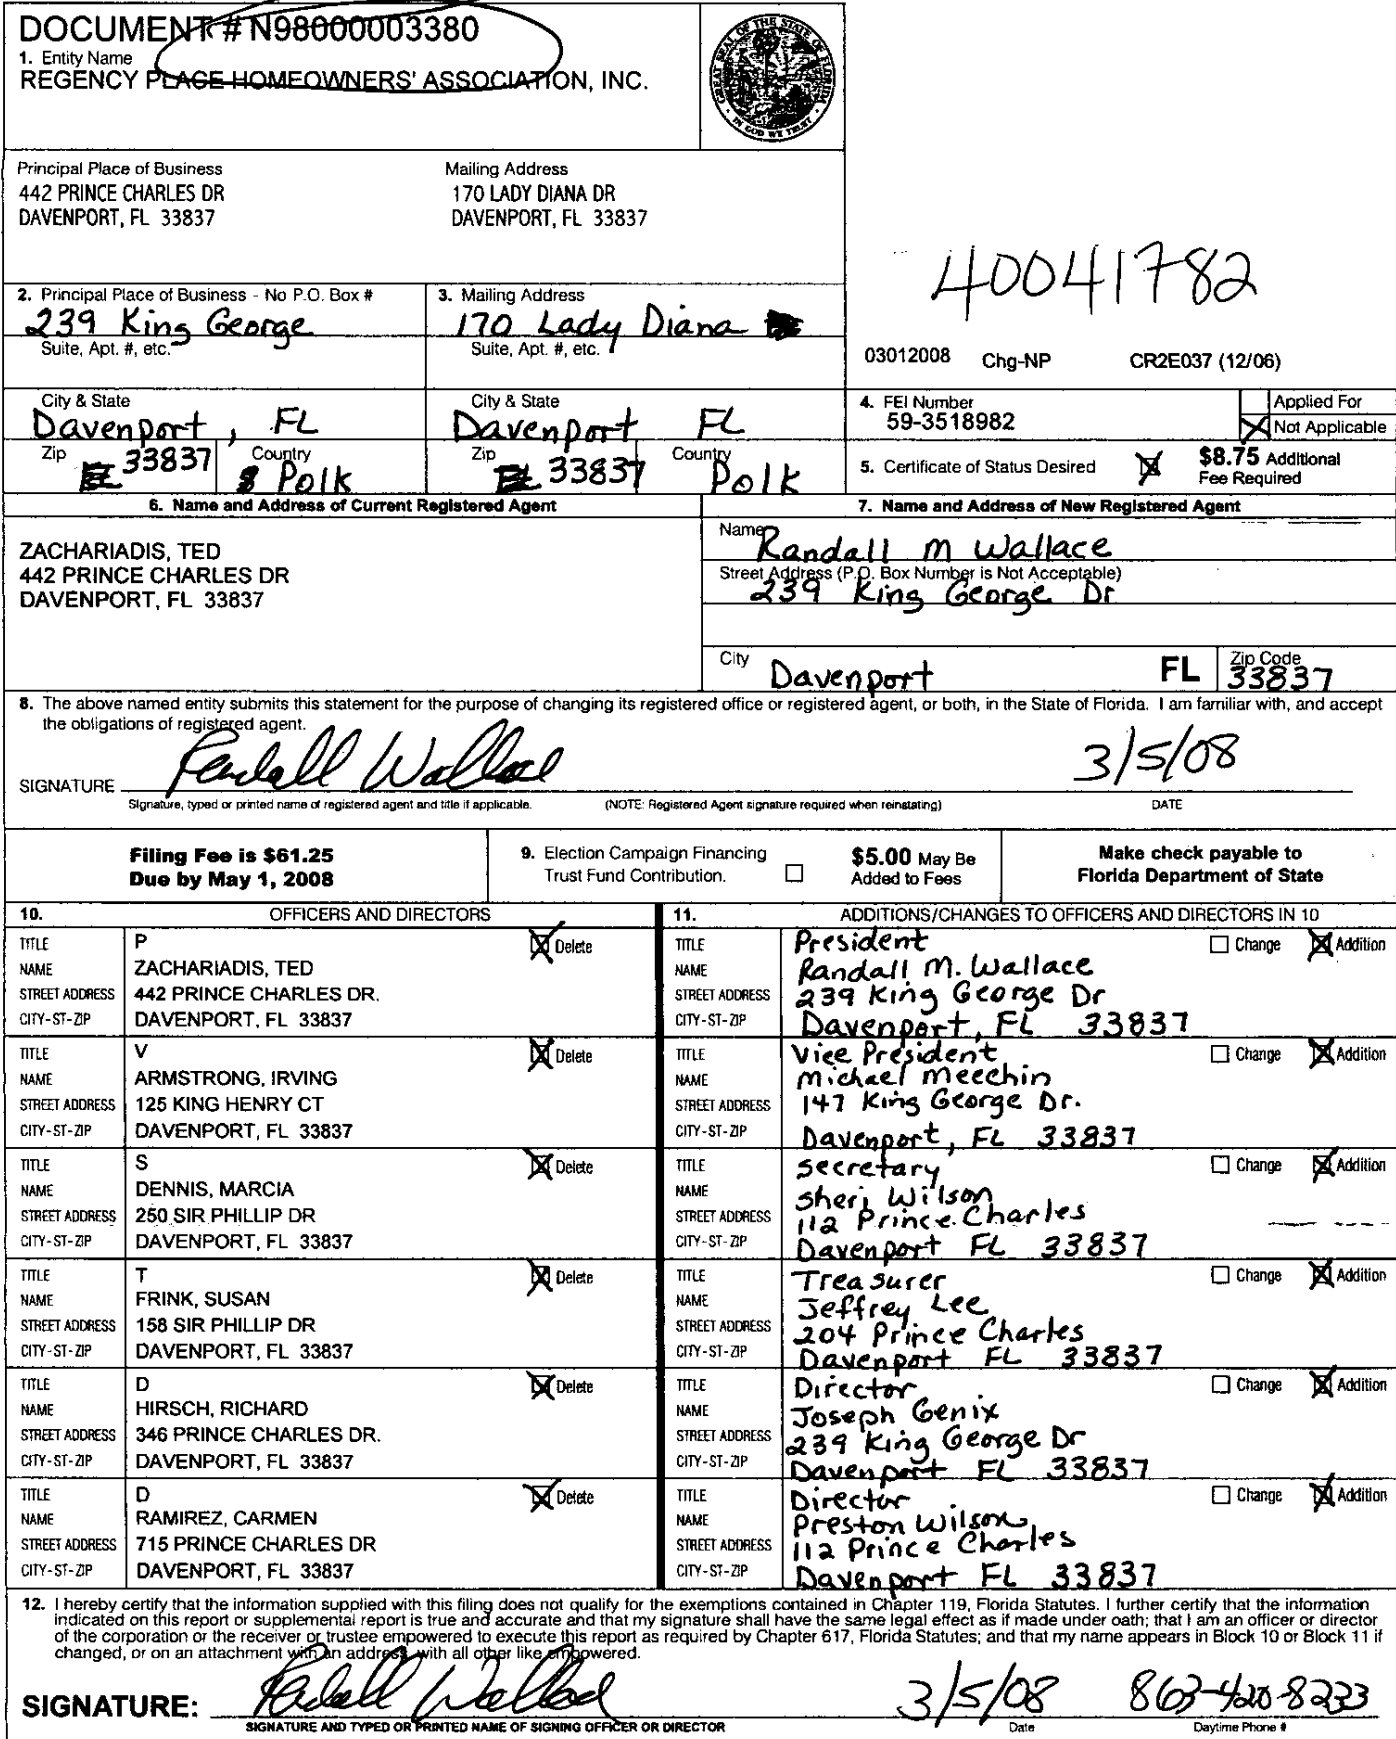 DOCUMENT # N98000003380
1. Entity Name
REGENCY PLACE HOMEOWNERS' ASSOCIATION, INC.
GREAT SEAL OF THE STATE OF FLORIDA
IN GOD WE TRUST
Principal Place of Business
442 PRINCE CHARLES DR
DAVENPORT, FL 33837
Mailing Address
170 LADY DIANA DR
DAVENPORT, FL 33837
40041782
03012008 Chg-NP CR2E037 (12/06)
2. Principal Place of Business - No P.O. Box #
239 King George
Suite, Apt. #, etc.
3. Mailing Address
170 Lady Diana
Suite, Apt. #, etc.
City & State
Davenport, FL
City & State
Davenport FL
Zip 33837 Country Polk
Zip 33837 Country Polk
4. FEI Number
59-3518982
Applied For
Not Applicable
5. Certificate of Status Desired
$8.75 Additional
Fee Required
6. Name and Address of Current Registered Agent
ZACHARIADIS, TED
442 PRINCE CHARLES DR
DAVENPORT, FL 33837
7. Name and Address of New Registered Agent
Name Randall M Wallace
Street Address (P.O. Box Number is Not Acceptable)
239 King George Dr
City Davenport FL Zip Code 33837
8. The above named entity submits this statement for the purpose of changing its registered office or registered agent, or both, in the State of Florida. I am familiar with, and accept
the obligations of registered agent.
SIGNATURE Randall Wallace 3/5/08
Signature, typed or printed name of registered agent and title if applicable. (NOTE: Registered Agent signature required when reinstating) DATE
Filing Fee is $61.25
Due by May 1, 2008
9. Election Campaign Financing
Trust Fund Contribution.
$5.00 May Be
Added to Fees
Make check payable to
Florida Department of State
10. OFFICERS AND DIRECTORS
11. ADDITIONS/CHANGES TO OFFICERS AND DIRECTORS IN 10
TITLE P Delete
NAME ZACHARIADIS, TED
STREET ADDRESS 442 PRINCE CHARLES DR.
CITY-ST-ZIP DAVENPORT, FL 33837
TITLE President Change Addition
NAME Randall M. Wallace
STREET ADDRESS 239 King George Dr
CITY-ST-ZIP Davenport, FL 33837
TITLE V Delete
NAME ARMSTRONG, IRVING
STREET ADDRESS 125 KING HENRY CT
CITY-ST-ZIP DAVENPORT, FL 33837
TITLE Vice President Change Addition
NAME Michael Meechin
STREET ADDRESS 147 King George Dr.
CITY-ST-ZIP Davenport, FL 33837
TITLE S Delete
NAME DENNIS, MARCIA
STREET ADDRESS 250 SIR PHILLIP DR
CITY-ST-ZIP DAVENPORT, FL 33837
TITLE Secretary Change Addition
NAME Sheri Wilson
STREET ADDRESS 112 Prince Charles
CITY-ST-ZIP Davenport FL 33837
TITLE T Delete
NAME FRINK, SUSAN
STREET ADDRESS 158 SIR PHILLIP DR
CITY-ST-ZIP DAVENPORT, FL 33837
TITLE Treasurer Change Addition
NAME Jeffrey Lee
STREET ADDRESS 204 Prince Charles
CITY-ST-ZIP Davenport FL 33837
TITLE D Delete
NAME HIRSCH, RICHARD
STREET ADDRESS 346 PRINCE CHARLES DR.
CITY-ST-ZIP DAVENPORT, FL 33837
TITLE Director Change Addition
NAME Joseph Genix
STREET ADDRESS 239 King George Dr
CITY-ST-ZIP Davenport FL 33837
TITLE D Delete
NAME RAMIREZ, CARMEN
STREET ADDRESS 715 PRINCE CHARLES DR
CITY-ST-ZIP DAVENPORT, FL 33837
TITLE Director Change Addition
NAME Preston Wilson
STREET ADDRESS 112 Prince Charles
CITY-ST-ZIP Davenport FL 33837
12. I hereby certify that the information supplied with this filing does not qualify for the exemptions contained in Chapter 119, Florida Statutes. I further certify that the information
indicated on this report or supplemental report is true and accurate and that my signature shall have the same legal effect as if made under oath; that I am an officer or director
of the corporation or the receiver or trustee empowered to execute this report as required by Chapter 617, Florida Statutes; and that my name appears in Block 10 or Block 11 if
changed, or on an attachment with an address, with all other like empowered.
SIGNATURE: Randall Wallace 3/5/08 863-420-8233
SIGNATURE AND TYPED OR PRINTED NAME OF SIGNING OFFICER OR DIRECTOR Date Daytime Phone #